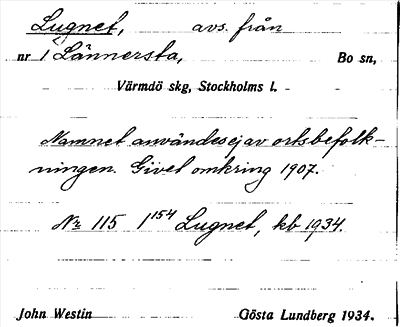 Lugnet, avs. från
nr 1 Lännersta, Bo sn,
Värmdö skg, Stockholms l.
Namnet användes ej av ortsbefolk-
ningen. Givet omkring 1907.
Nr 115 1¹⁵⁴ Lugnet, kb 1934.
John Westin Gösta Lundberg 1934.